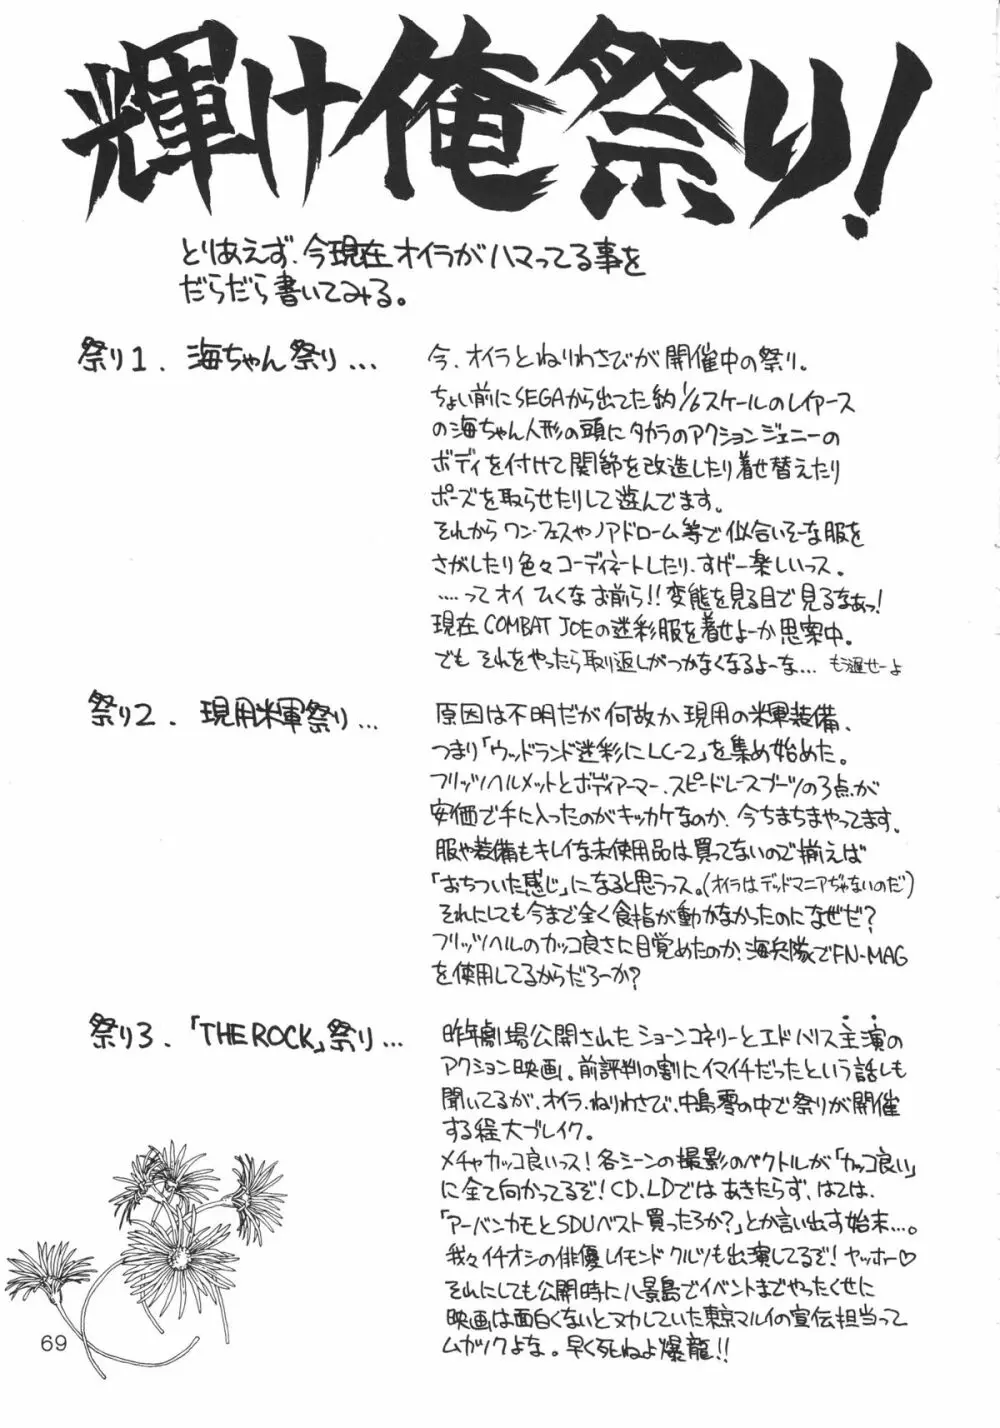 輝け俺祭り!
とりあえず、今現在オイラがハマってる事を
だらだら書いてみる。
祭り1. 海ちゃん祭り...
今、オイラとねりわさびが開催中の祭り。
ちょい前にSEGAから出てた約1/6スケールのレイアース
の海ちゃん人形の頭にタカラのアクションジェニーの
ボディを付けて関節を改造したり着せ替えたり
ポーズを取らせたりして遊んでます。
それからワン・フェスやノアドローム等で似合いそーな服を
さがしたり色々コーディネートしたり、すげー楽しいっス。
....ってオイ ひくな お前ら!!変態を見る目で見るなぁっ!
現在COMBAT JOEの迷彩服を着せよーか思案中。
でも それをやったら取り返しがつかなくなるよーな... もう遅せーよ
祭り2. 現用米軍祭り...
原因は不明だが何故か現用の米軍装備、
つまり「ウッドランド迷彩にLC-2」を集め始めた。
フリッツヘルメットとボディアーマー、スピードレースブーツの3点が
安価で手に入ったのがキッカケなのか、今ちまちまやってます。
服や装備もキレイな未使用品は買ってないので揃えば
「おちついた感じ」になると思うっス。(オイラはデッドマニアぢゃないのだ)
それにしても今まで全く食指が動かなかったのになぜだ?
フリッツヘルのカッコ良さに目覚めたのか、海兵隊でFN-MAG
を使用してるからだろーか?
祭り3.「THE ROCK」祭り...
昨年劇場公開されたショーンコネリーとエドハリス主演の
アクション映画。前評判の割にイマイチだったという話しも
聞いてるが、オイラ、ねりわさび、中島零の中で祭りが開催
する程大ブレイク。
メチャカッコ良いっス!各シーンの撮影のベクトルが「カッコ良い」
に全て向かってるぞ!CD、LDではあきたらず、はては、
「アーバンカモとSDUベスト買ったろか?」とか言い出す始末...。
我々イチオシの俳優レイモンド クルツも出演してるぞ!ヤッホー♡
それにしても公開時に八景島でイベントまでやったくせに
映画は面白くないとヌカしていた東京マルイの宣伝担当って
ムカツクよな。早く死ねよ爆龍!!
69